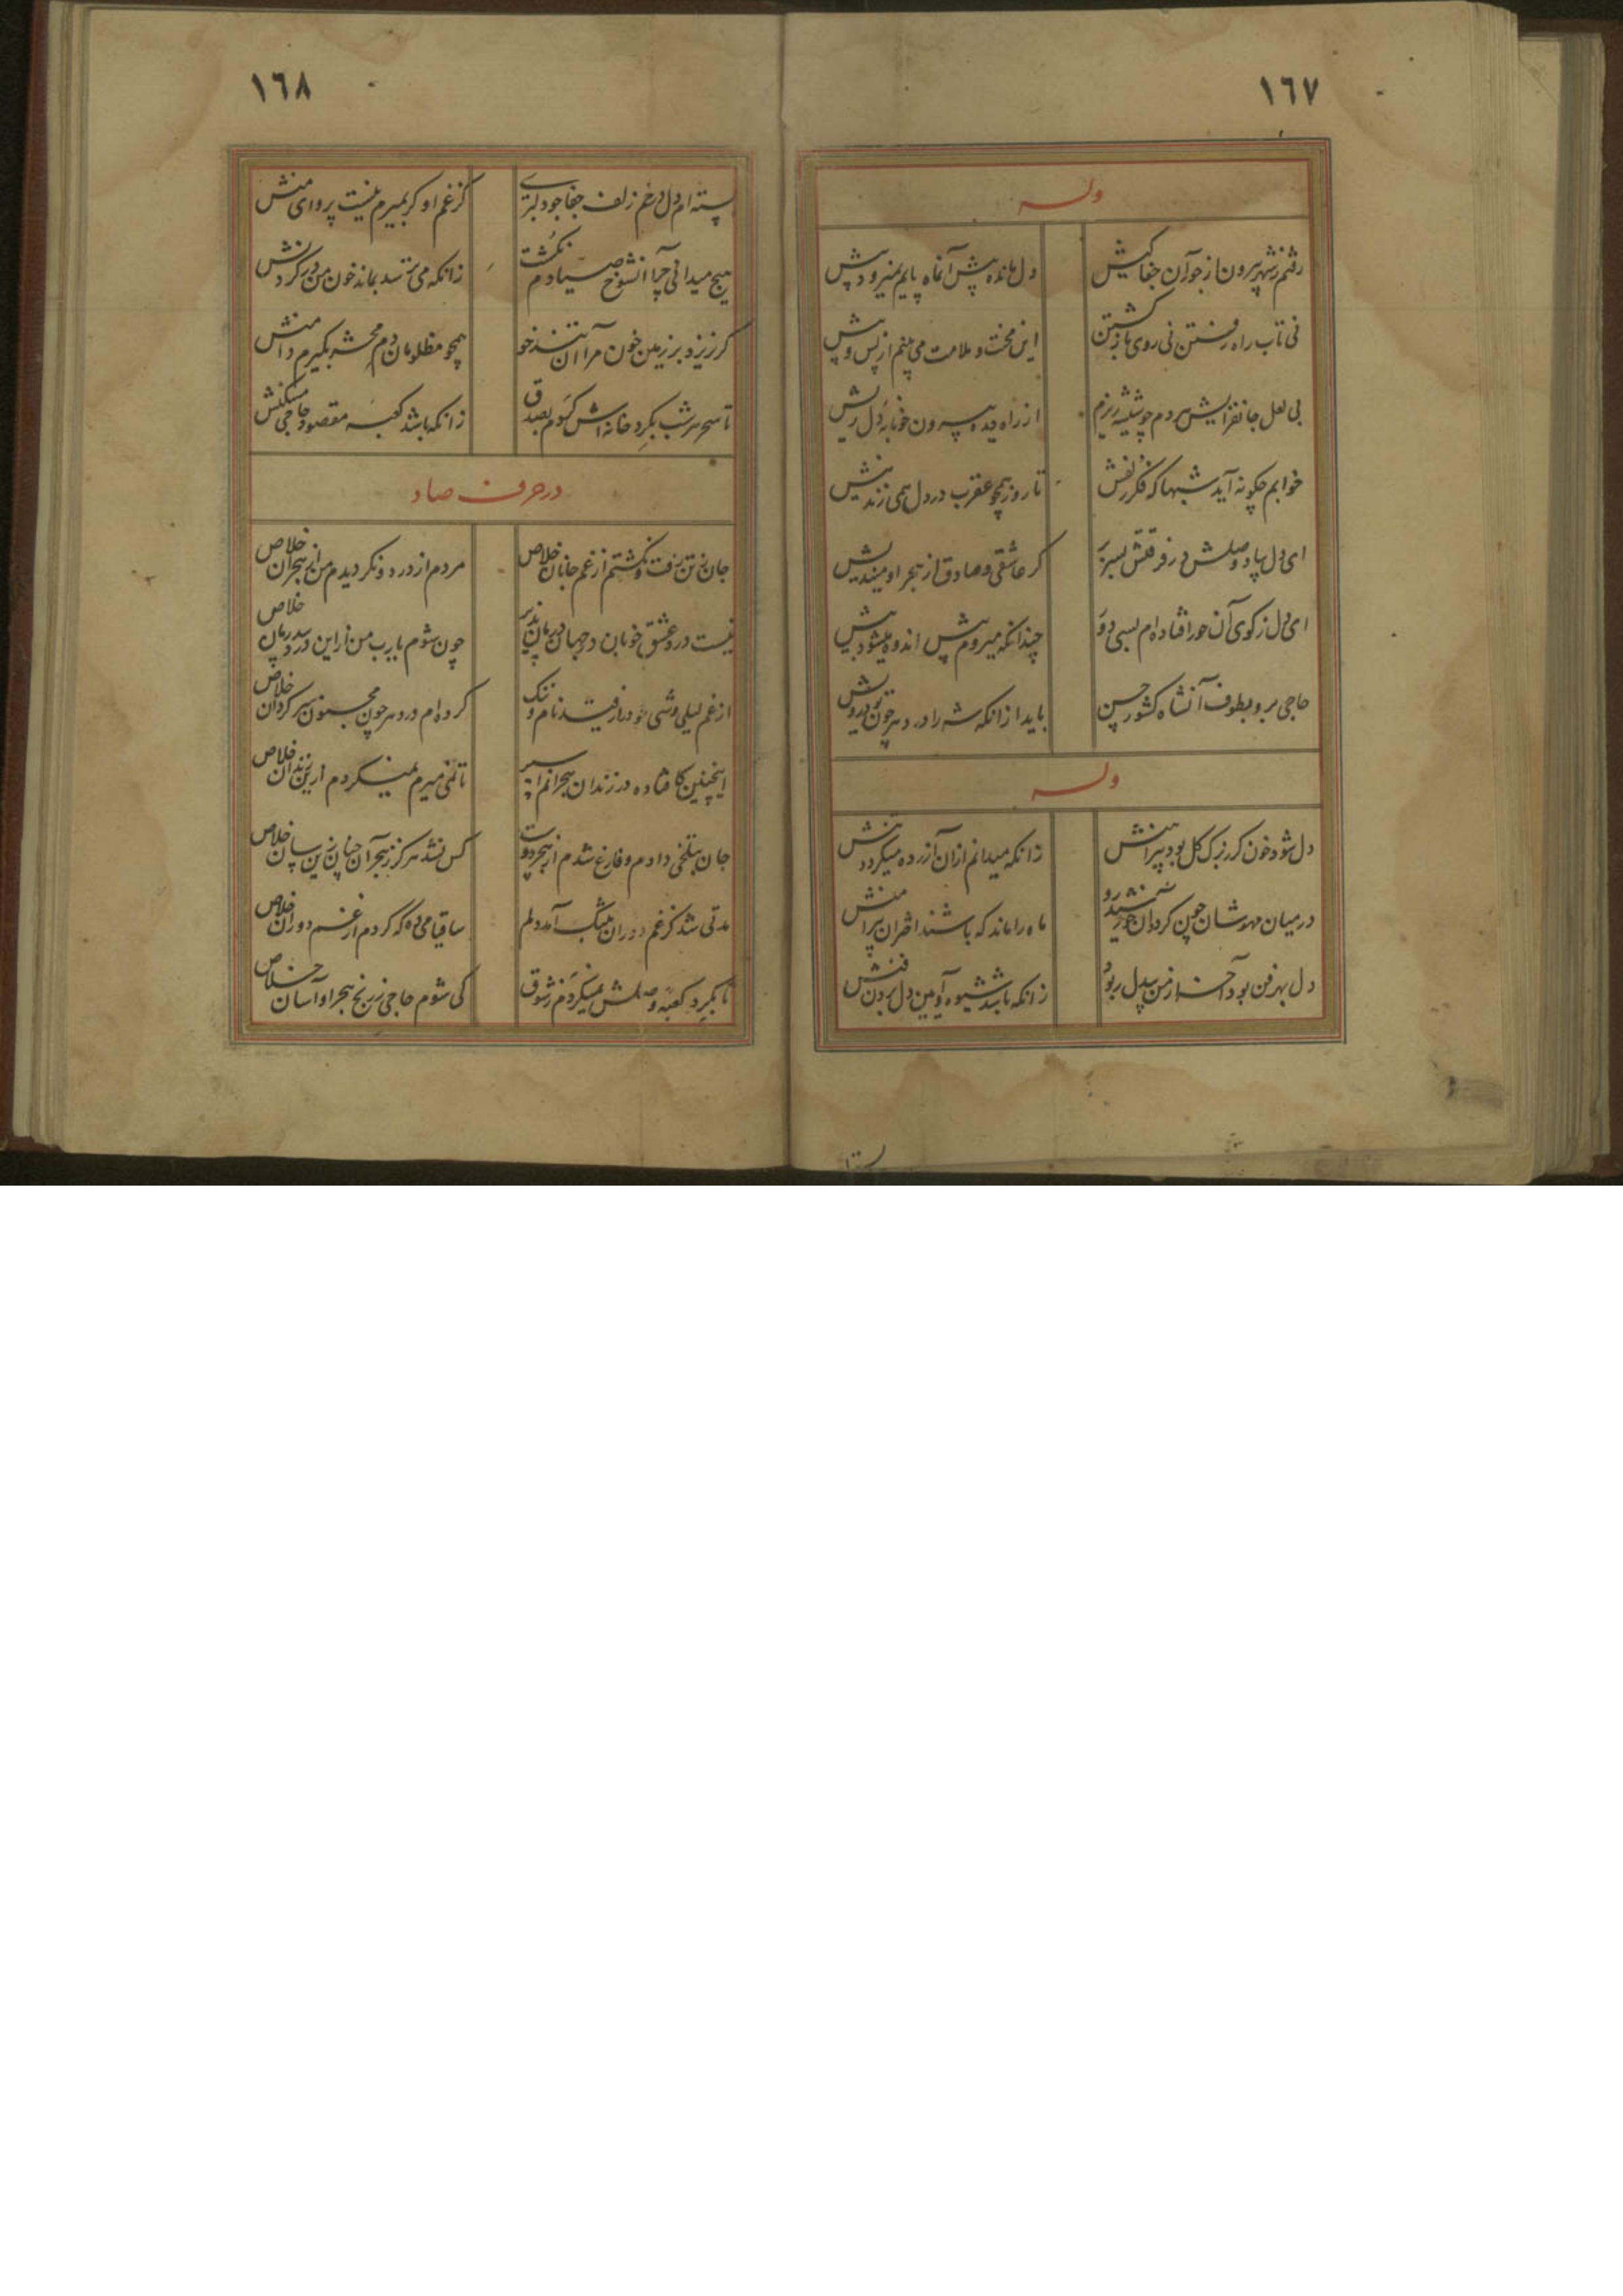 ١٦٧
وله
رفتم ز شهر بیرون از جور آن جفا کیش
دل مانده پیش آنماه پایم نمیرود پیش
نی تاب راه رفتن نی روی بازگشتن
این محنت و ملامت می بینم از پس و پیش
بی لعل جانفزایش هر دم چو شیشه ریزم
از راه دیده بیرون خونابه دل ریش
خوابم چگونه آید شبها که فکر زلفش
تا روز همچو عقرب در دل همی زند نیش
ای دل بیاد وصلش در فرقتش بسر بر
گر عاشقی و صادق از هجر او میندیش
ای دل ز کوی آن حور افتاده ام بسی دور
چندانکه میروم پیش اندوه میشود بیش
حاجی برو بطوف آنشاه کشور حسن
باید از آنکه شه را در دهر چون تو درویش
وله
دل شود خون گر ز برک کل بود پیراهنش
زانکه میدانم ازان آزرده میکردد تنش
در میان مهوشان چون کردد آن خورشید رو
ماه را ماند که باشند اختران پیرامنش
دل بهر فن بود آخر از من بیدل ربود
زانکه باشد شیوه آیین دل بردن فنش
بسته ام
١٦٨
بسته ام دل در خم زلف جفا جو دلبری
کز غم او کر بمیرم نیست پروای منش
هیچ میدانی چرا آنشوخ صیادم نکشت
زانکه می ترسد بماند خون من در کردنش
کر بریزد بر زمین خون مرا آن تندخو
همچو مظلومان دم محشر بکیرم دامنش
تا سحر هر شب بکرد خانه اش کردم بصدق
زانکه باشد کعبه مقصود حاجی مسکنش
در حرف صاد
جان ز تن رفت و نکشتم از غم جانان خلاص
مردم از درد و نکردیدم من از هجران خلاص
نیست درد عشق خوبان در جهان درمان پذیر
چون شوم یارب من از این درد بیدرمان خلاص
از غم لیلی وشی خود را ز قید نام و ننک
کرده ام در دهر چون مجنون سرکردان خلاص
اینچنین کافتاده در زندان هجرانم اسیر
تا نمی میرم نمیکردم ازین زندان خلاص
جان بتلخی دادم و فارغ شدم از هجر دوست
کس نشد هرکز ز هجر آن جنان زین سان خلاص
مدتی شد کز غم دوران بتنک آمد دلم
ساقیا می ده که گردم از غم دوران خلاص
تا بکرد کعبه وصلش نمیکردم ز شوق
کی شوم حاجی ز رنج هجر او آسان خلاص